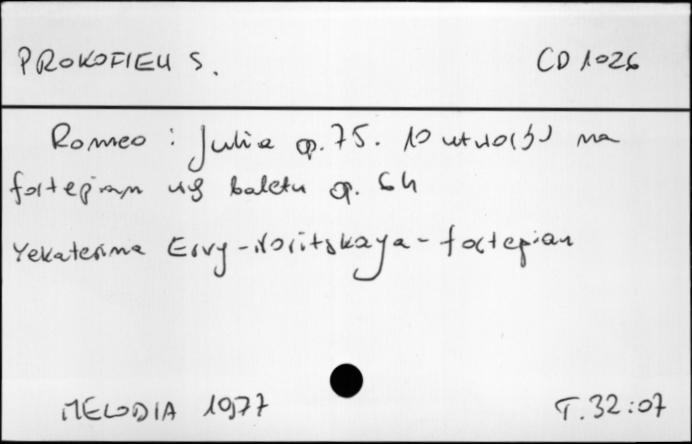 PROKOFIEW S. CD 1026
Romeo i Julia op. 75. 10 utworów na
fortepian wg baletu op. 64
Yekaterina Ervy-Novitskaya - fortepian
MELODIA 1977 T. 32:07